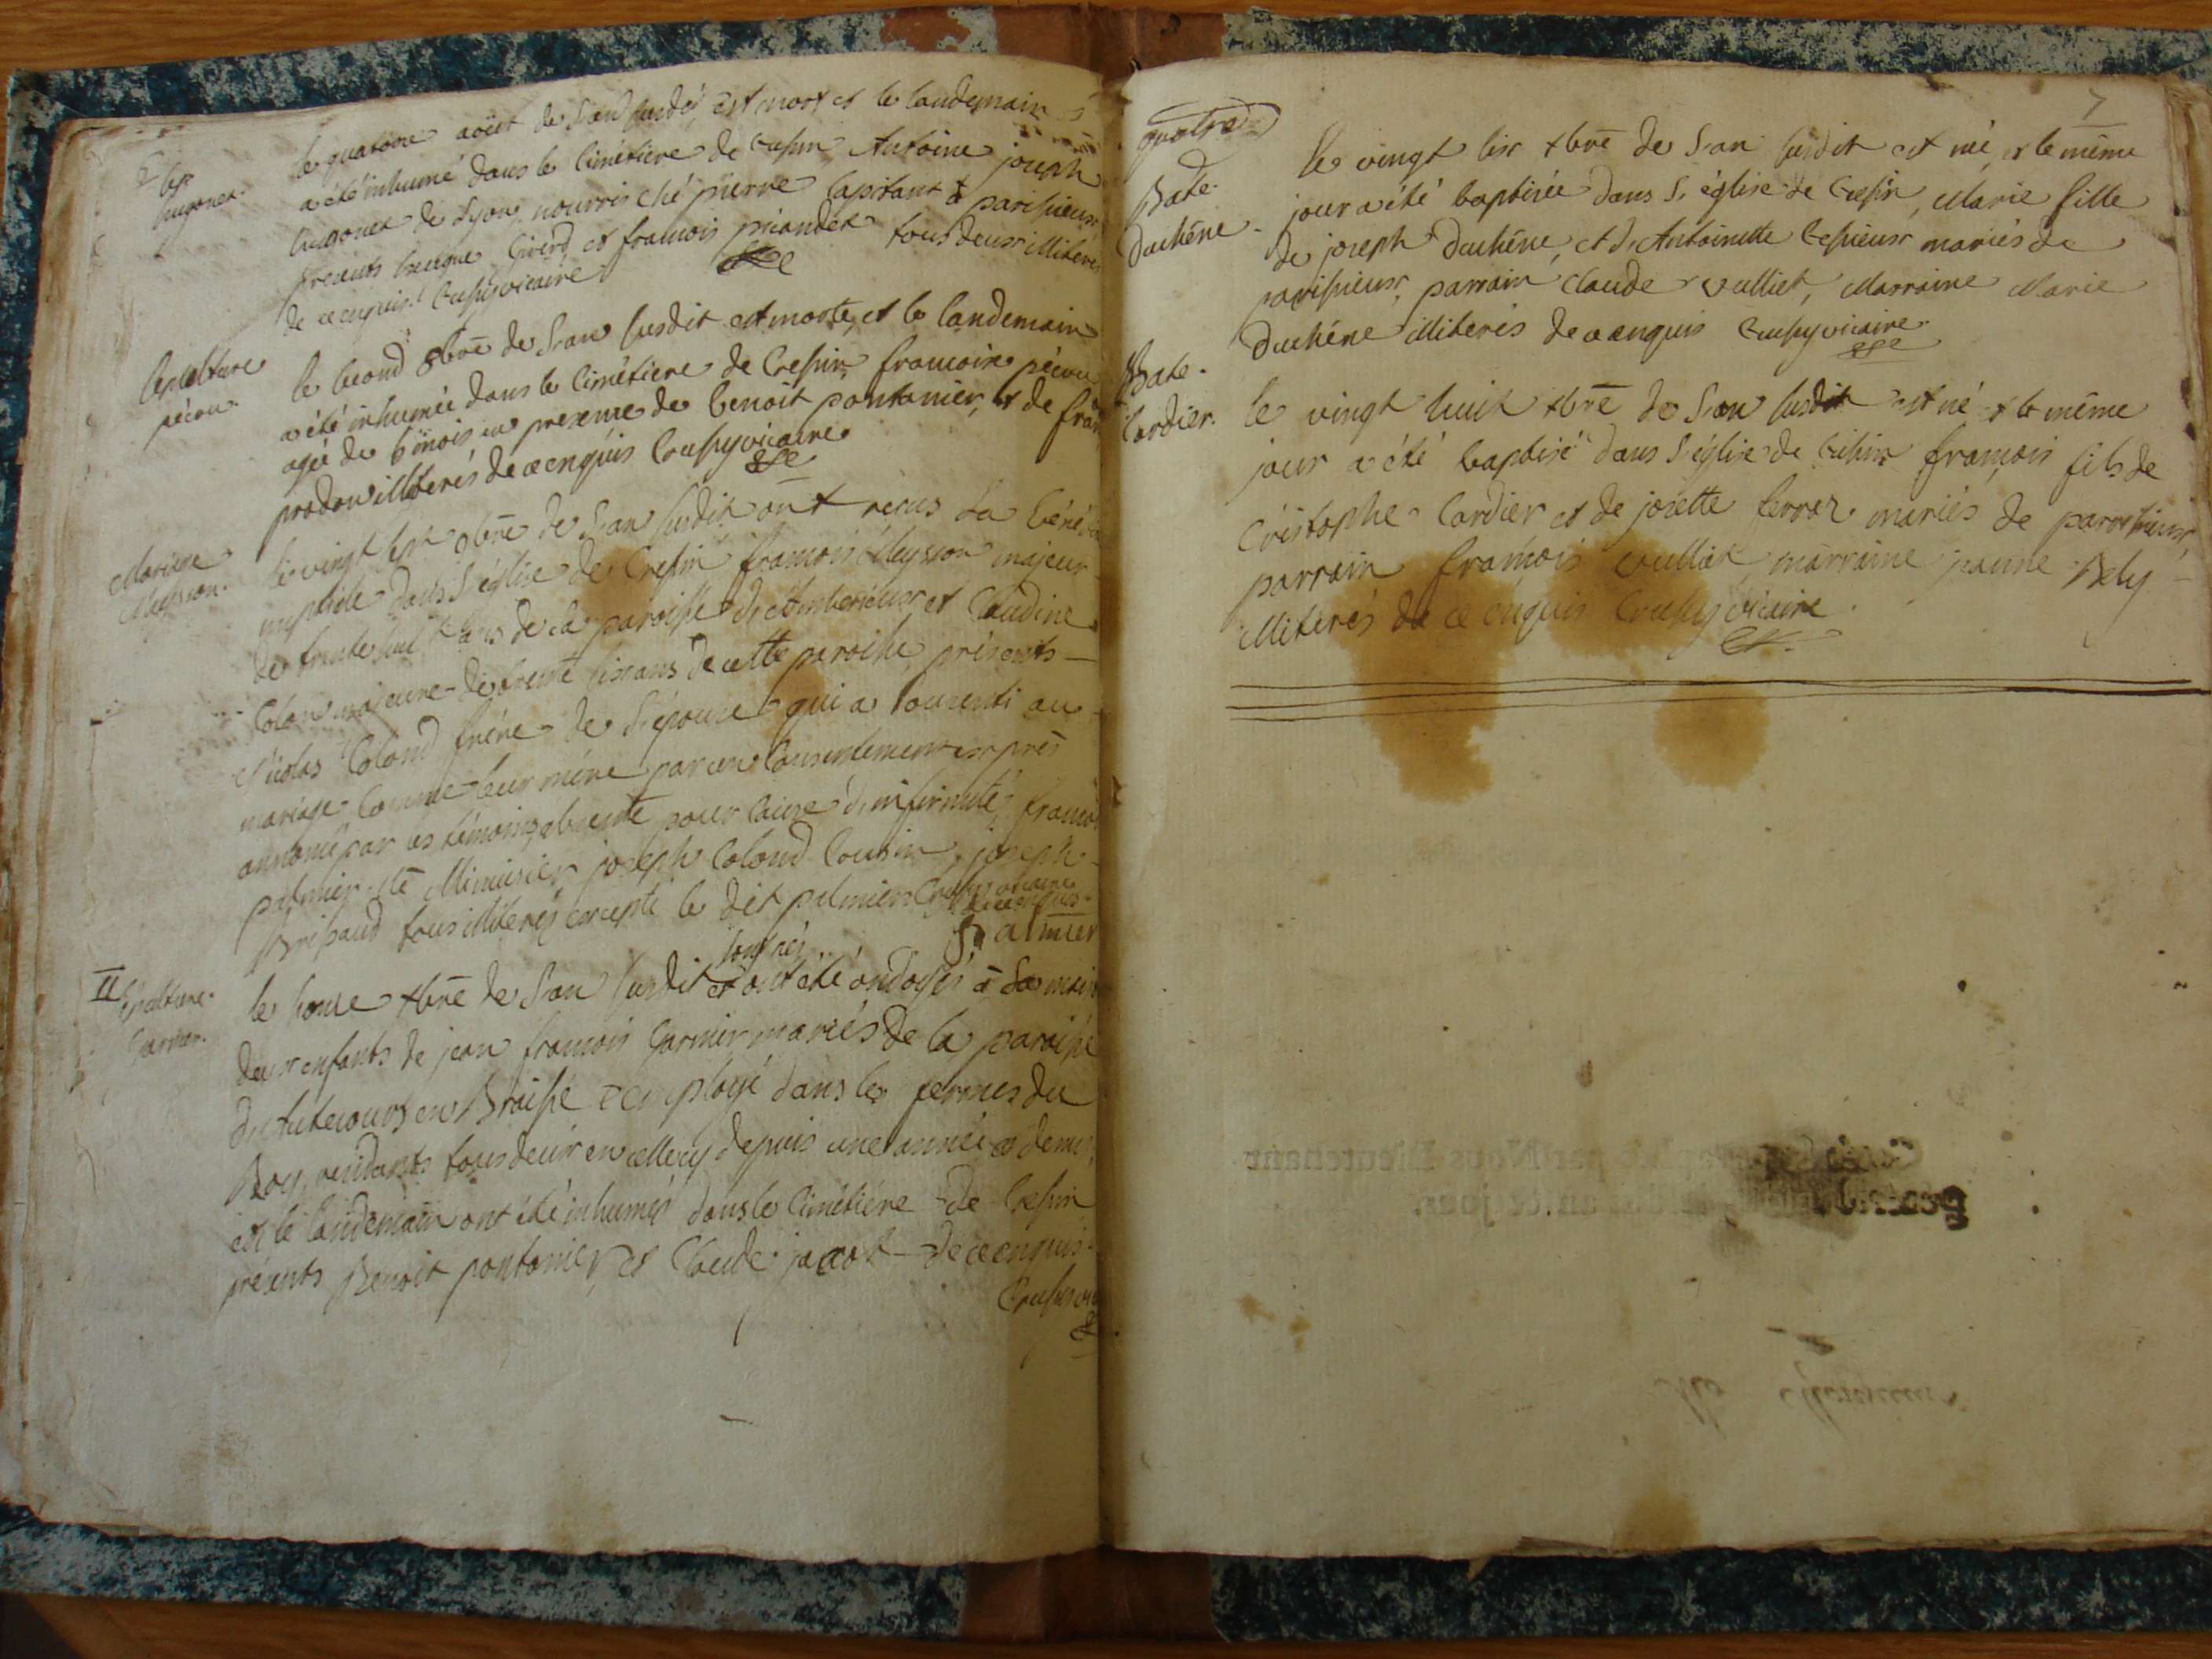 Sep.
hugonet.
le quatorze août de l'an susdit est mort et le landemain
a été inhumé dans le cimétiere de Cressin Antoine joseph
hugonet de Lyon, nourris ché pierre Capitant parissieux
presents Girerd et francois picandet tous deux illiterés
de ce enquis. Crussy vicaire
Sepulture
pécou.
le second 8bre de l'an susdit est morte, et le landemain
a été inhumée dans le cimétiere de Cressin francoise pécou
agée de 6 mois en presence de benoit pontanier, et de fran
prodon illiterés de ce enquis Crussy vicaire
Mariage
Meysson.
le vingt sept 9bre de l'an susdit ont recus la béné
nuptiale dans l'église de Cressin francois Meysson majeur
de trente huit ans de la paroisse et Claudine
Colon majeure de trente six ans de cette paroisse, présents
Nicolas Colond frére de l'épouse qui a consenti au
mariage comme leur mére par un consentement exprès
annoncé par les témoins absente pour cause d'infirmité, francois
palmier Menuisier, joseph Colond cousin, joseph
Bripaud tous illiterés excepté le dit palmier Crussy vicaire
de ce enquis
palmier
II
Sepulture.
Garnier.
sont nés
le xbre de l'an susdit et ont été ondoyés à la maison
deux enfants de jean francois Garnier mariés de la paroisse
en Bresse employé dans les fermes du
Roy, residants tous deux en depuis une année et demie,
et le landemain ont été inhumés dans le cimétiére de Cressin
présents Benoit pontanier, et Claude jacot de ce enquis
Crussy vic
7
quatre
Bate.
Duchêne
le vingt six xbre de l'an susdit est né, et le même
jour a été baptisée dans l'église de Cressin, Marie fille
de joseph Duchêne, et d'Antoinette Cessieux mariés de
parissieux, parrain Claude vulliet, Marraine Marie
Duchêne illiterés de ce enquis Crussy vicaire.
Bate.
Cordier.
le vingt huit xbre de l'an susdit est né et le même
jour a été baptisé dans l'église de Cressin francois fils de
Cristophe Cordier et de josette ferraz mariés de parissieux,
parrain francois vulliet, marraine jeanne Bely
illiterés de ce enquis Crussy vicaire.